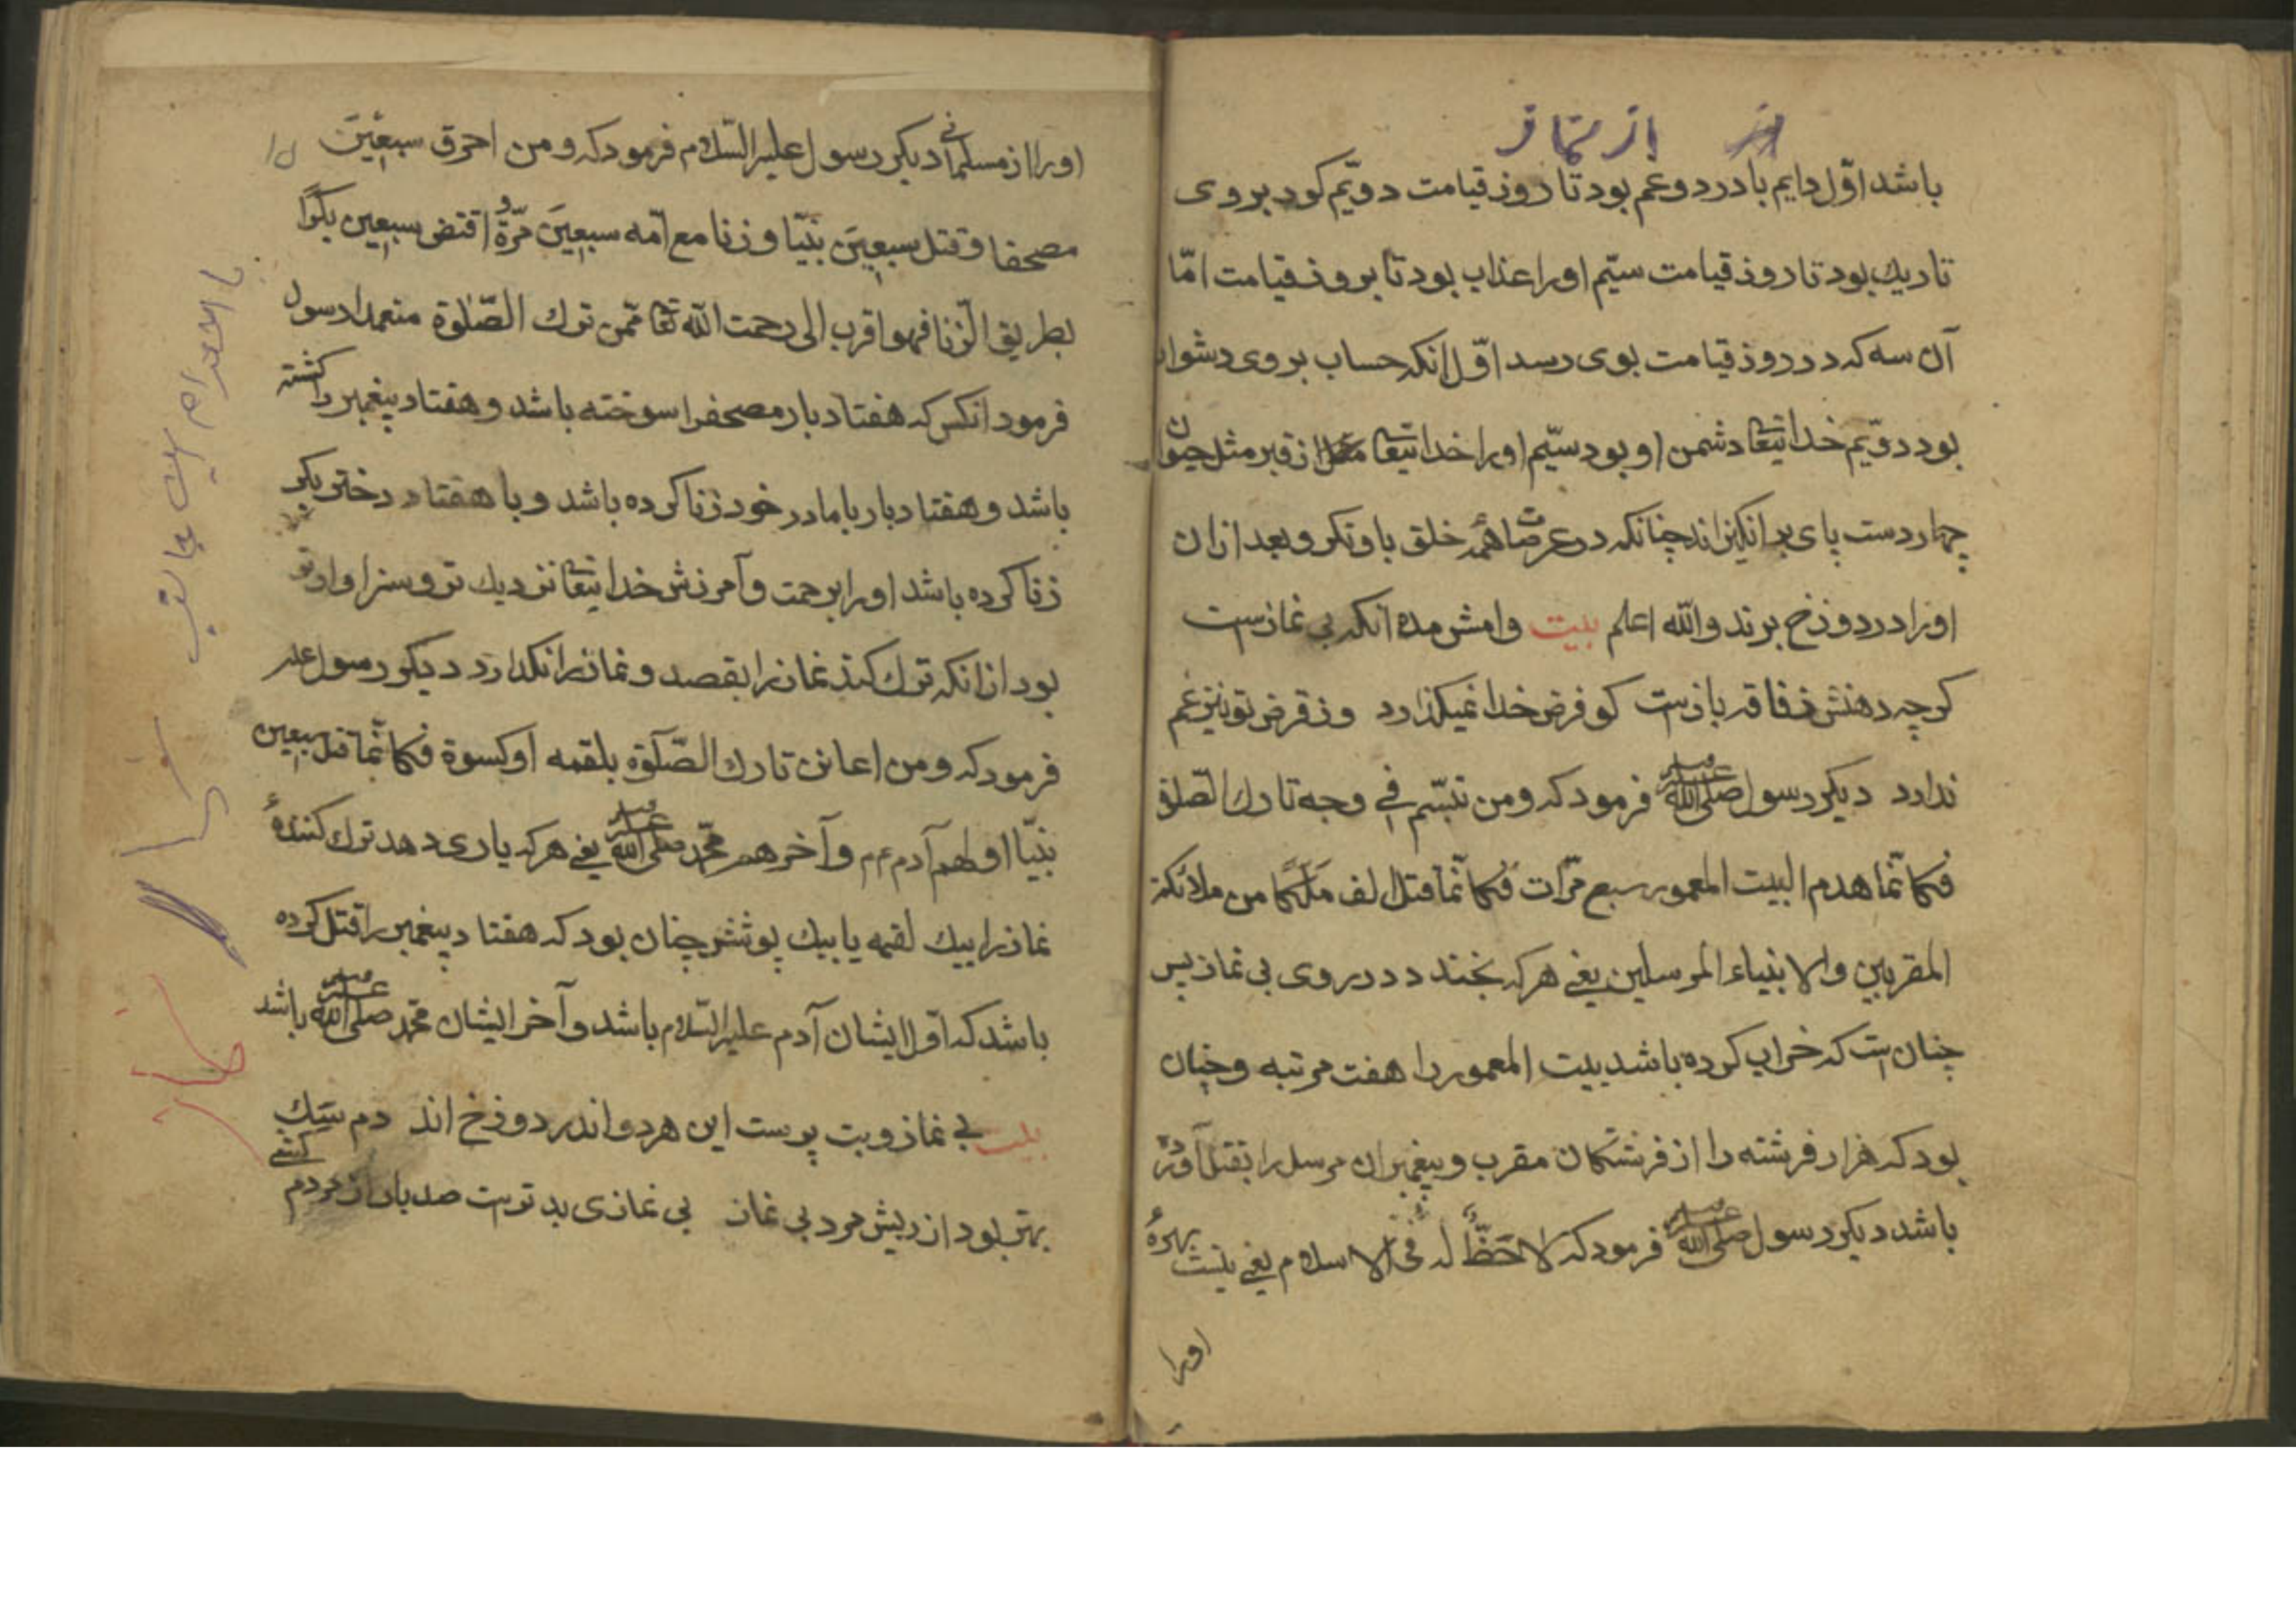 از نماز
باشد اوّل دايم با درد و غم بود تا روز قيامت دويّم كور بروى
تاريك بود تا روز قيامت سيّم اورا عذاب بود تا بروز قيامت امّا
آن سه كه در روز قيامت بوى رسد اوّل انكه حساب بر وى دشوار
بود دويّم خدايتعا دشمن او بود سيّيم اورا خدايتعا از قبر مثل حيوان
چهار دست پاى بر انكيزاند چنانكه در عرصات همهٔ خلق باو نكرو بعد ازان
اورا در دوزخ برند والله اعلم بيت وامش مده انكه بى نمازست
كرچه دهنش ز فاقه بازست كو فرض خدا نميكذارد وز قرض تو نيز غم
ندارد ديكر رسول صلى الله عليه وسلم فرمود كه ومن تبسّم فى وجه تارك الصّلوة
فكانّما هدم البيت المعمور سبع مرّات فكانّما قتل الف ملَكًا من ملائكة
المقربين والانبياء المرسلين يعنى هركه بخندد در روى بى نماز پس
چنان است كه خراب كرده باشد بيت المعمور را هفت مرتبه وچنان
بود كه هزار فرشته را از فرشتكان مقرب وپيغمبران مرسل را بقتل آورده
باشد ديكر رسول صلى الله عليه وسلم فرمود كه لا حَظٌّ له فى الاسلام يعنى نيست بهرهٔ
اورا
اورا از مسلمانى ديكر رسول عليه السّلام فرمود كه ومن احرق سبعينَ
مصحفا وقتل سبعينَ نبيّا وزنا مع امّه سبعينَ مرّةً واقتض سبعين بكرًا
بطريق الزّنا فهو اقرب الى رحمت الله تعا ممّن ترك الصّلوة متعمدا رسول
فرمود انكس كه هفتاد بار مصحف را سوخته باشد وهفتاد پيغمبر را كشته
باشد وهفتاد بار با مادر خود زنا كرده باشد وبا هفتاد دختر بكر
زنا كرده باشد اورا برحمت وآمرزش خدايتعا نزديك تر وسزاوارتر
بود از انكه ترك كند نماز را بقصد ونماز را نكذارد ديكر رسول عليه
فرمود كه ومن اعان تارك الصّلوة بلقمه او كسوة فكانّما قتل سبعين
نبيّا اولهم آدم عم وآخرهم محمّد صلى الله عليه وسلم يعنى هركه يارى دهد ترك كنندهٔ
نماز را بيك لقمه يا بيك پوشش چنان بود كه هفتاد پيغمبر را قتل كرده
باشد كه اوّل ايشان آدم عليه السّلام باشد وآخر ايشان محمّد صلى الله عليه وسلم باشد
بيت بى نماز وبت پرست اين هردو اندر دوزخ اند دم سَك
بهتر بود از ريش مرد بى نماز بى نمازى بدترست صد بار از مردم كشى